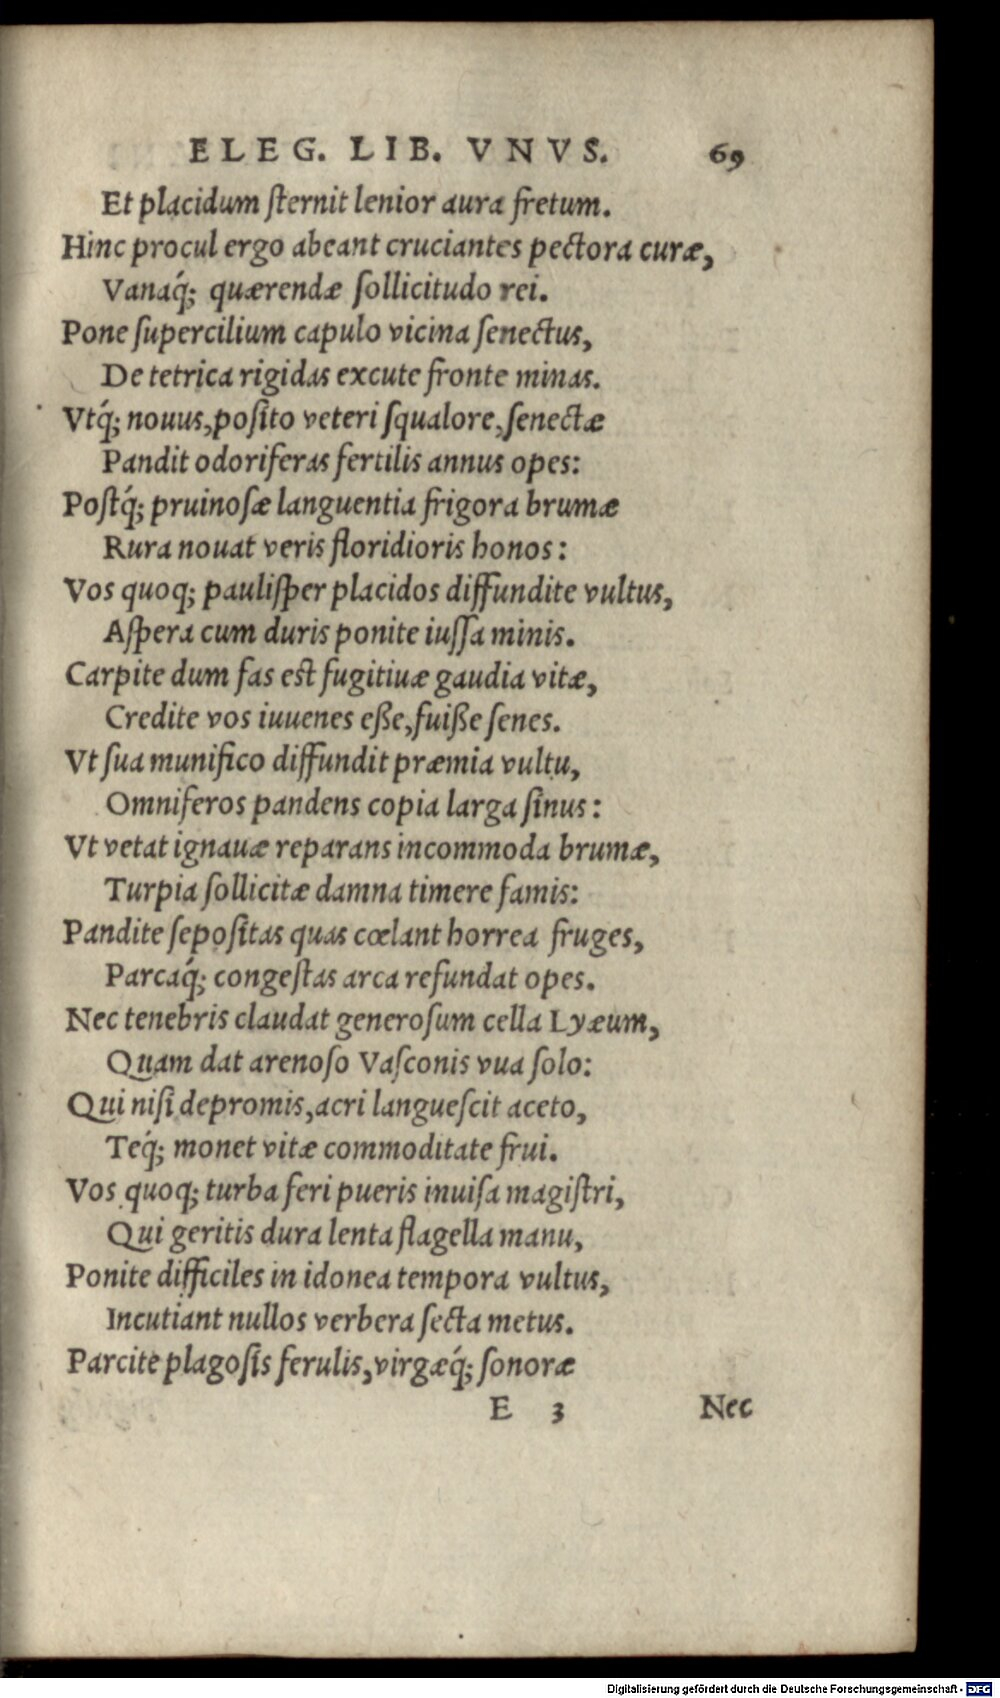 ELEG. LIB. VNVS. 69
Et placidum ſternit lenior aura fretum.
Hinc procul ergo abeant cruciantes pectora curæ,
Vanaq́; quærendæ ſollicitudo rei.
Pone ſupercilium capulo vicina ſenectus,
De tetrica rigidas excute fronte minas.
Vtq́; nouus, poſito veteri ſqualore, ſenectæ
Pandit odoriferas fertilis annus opes:
Poſtq́; pruinoſæ languentia frigora brumæ
Rura nouat veris floridioris honos:
Vos quoq; pauliſper placidos diffundite vultus,
Aſpera cum duris ponite iuſſa minis.
Carpite dum fas est fugitiuæ gaudia vitæ,
Credite vos iuuenes eße, fuiße ſenes.
Vt ſua munifico diffundit præmia vultu,
Omniferos pandens copia larga ſinus:
Vt vetat ignauæ reparans incommoda brumæ,
Turpia ſollicitæ damna timere famis:
Pandite ſepoſitas quas cœlant horrea fruges,
Parcaq́; congeſtas arca refundat opes.
Nec tenebris claudat generoſum cella Lyæum,
Quam dat arenoſo Vaſconis vua ſolo:
Qui niſi depromis, acri langueſcit aceto,
Teq́; monet vitæ commoditate frui.
Vos quoq; turba feri pueris inuiſa magiſtri,
Qui geritis dura lenta flagella manu,
Ponite difficiles in idonea tempora vultus,
Incutiant nullos verbera ſecta metus.
Parcite plagoſis ferulis, virgæq́; ſonoræ
E 3 Nec
Digitalisierung gefördert durch die Deutsche Forschungsgemeinschaft - DFG